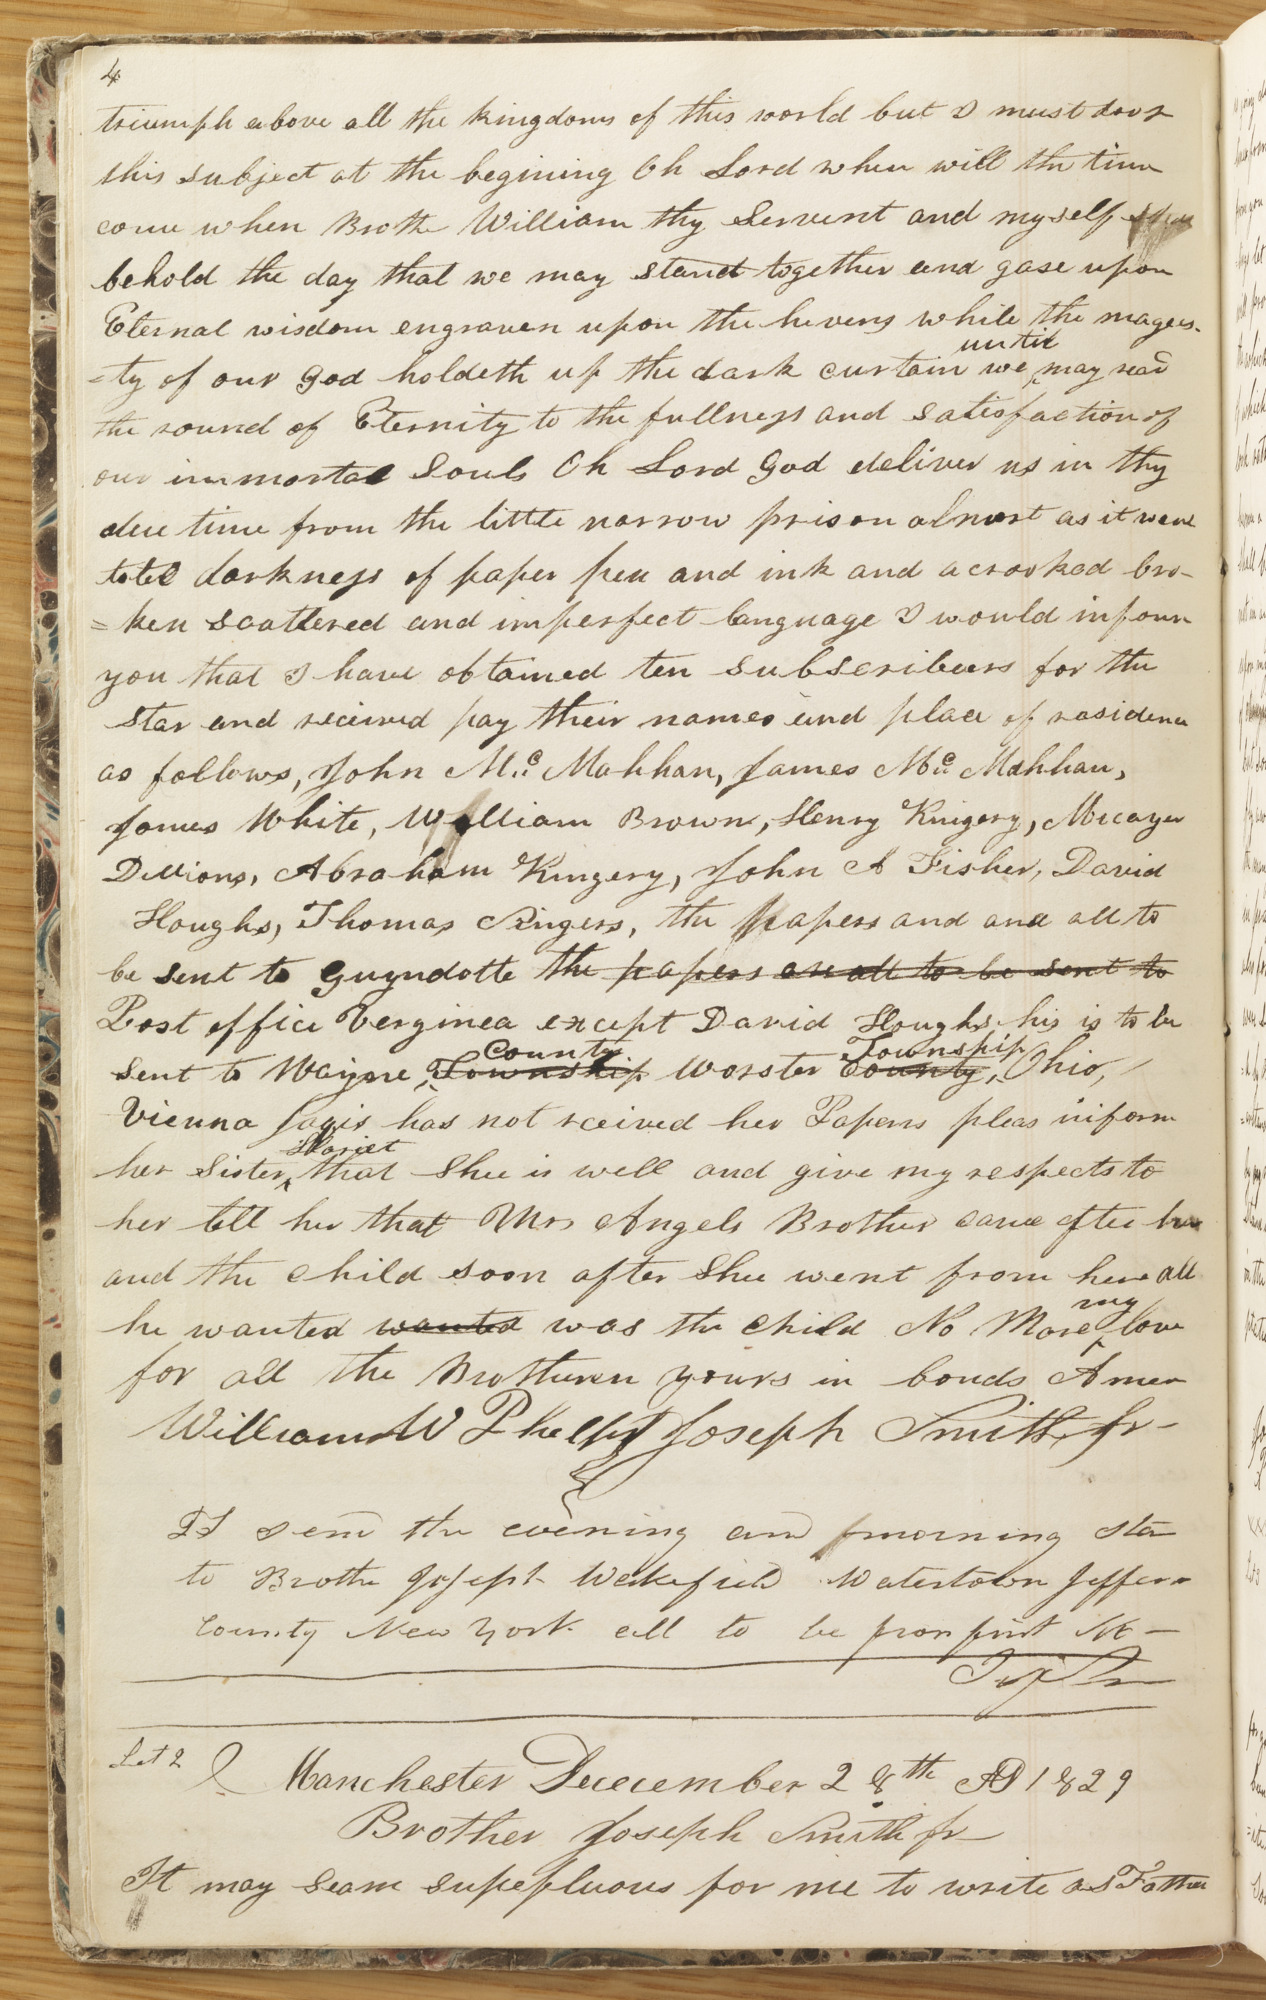 4
triumph above all the kingdoms of this world but I must drop
this subject at the begining Oh Lord when will the time
come when Brothe William thy Servent and myself
behold the day that we may stand together and gase upon
Eternal wisdom engraven upon the hevens while the magees-
=ty of our God holdeth up the dark curtain we until may read
the round of Eternity to the fullness and satisfaction of
our immortal Souls Oh Lord God deliver us in thy
due time from the little narrow prison almost as it were
totel darkness of paper pen and ink and a crooked bro-
=ken scattered and imperfect language I would inform
you that I have obtained ten subscribeers for the
star and received pay their names and place of residence
as follows, John Mc. Mahhan, James Mc. Mahhan,
James White, William Brown, Henry Kingery, Micayer
Dillions, Abraham Kingery, John A Fisher, David
Houghs, Thomas Singers, the papers and and all to
be sent to Guyndotte the papers are all to be sent to
Post office Verginea except David Houghs his is to be
sent to Wayne, County Township Worster Township County, Ohio,
Vienna Jagis has not rceived her Papers pleas inform
her Sister, Hariet that Shee is well and give my respects to
her tell her that Mrs Angels Brother came after her
and the child soon after Shee went from here all
he wanted wanted was the child No More my love
for all the Brotheren yours in bonds Amen
William W Phelps Joseph Smith, Jr-
to Brothe Joseph Wakefield Watertown Jeffers
county New York all to be from first No-
Let 2 Manchester Dececember 28th AD 1829
Brother Joseph Smith jr
It may seam supepluous for me to write as Father